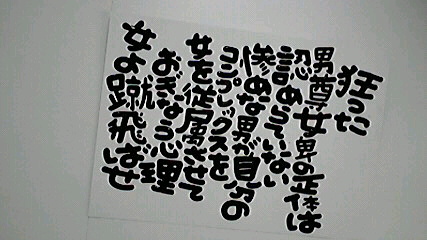 狂った
男尊女卑の正体は
認められていない
惨めな男が自分の
コンプレックスを
女を従属させて
おぎなう心理
女よ蹴飛ばせ